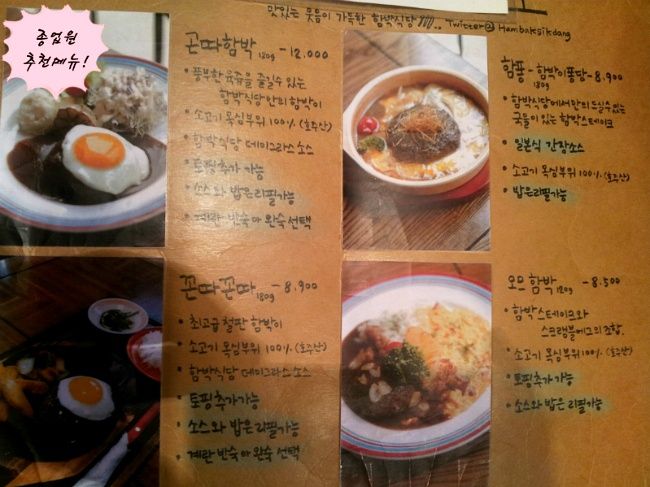 종업원
추천메뉴!
맛있는 웃음이 가득한 함박식당 Twitter@ Hambaksikdang
곤따함박 180g - 12,000
• 풍부한 육즙을 즐길수 있는
함박식당만의 함박이
• 소고기 목심부위 100% (호주산)
• 함박식당 데미그라스 소스
• 토핑추가 가능
• 소스와 밥은 리필가능
• 계란 반숙 or 완숙 선택
함퐁 - 함박이퐁당 - 8,900
180g
• 함박식당에서만 드실수있는
국물이 있는 함박스테이크
• 일본식 간장소스
• 소고기 목심부위 100% (호주산)
• 밥은리필가능
꼰따꼰따 180g - 8,900
• 최고급 철판 함박이
• 소고기 목심부위 100% (호주산)
• 함박식당 데미그라스 소스
• 토핑추가가능
• 소스와 밥은 리필가능
• 계란 반숙 or 완숙 선택
오므 함박 120g - 8,500
• 함박스테이크와
스크램블에그의 조합.
• 소고기 목심부위 100% (호주산)
• 토핑추가가능
• 소스와 밥은 리필가능